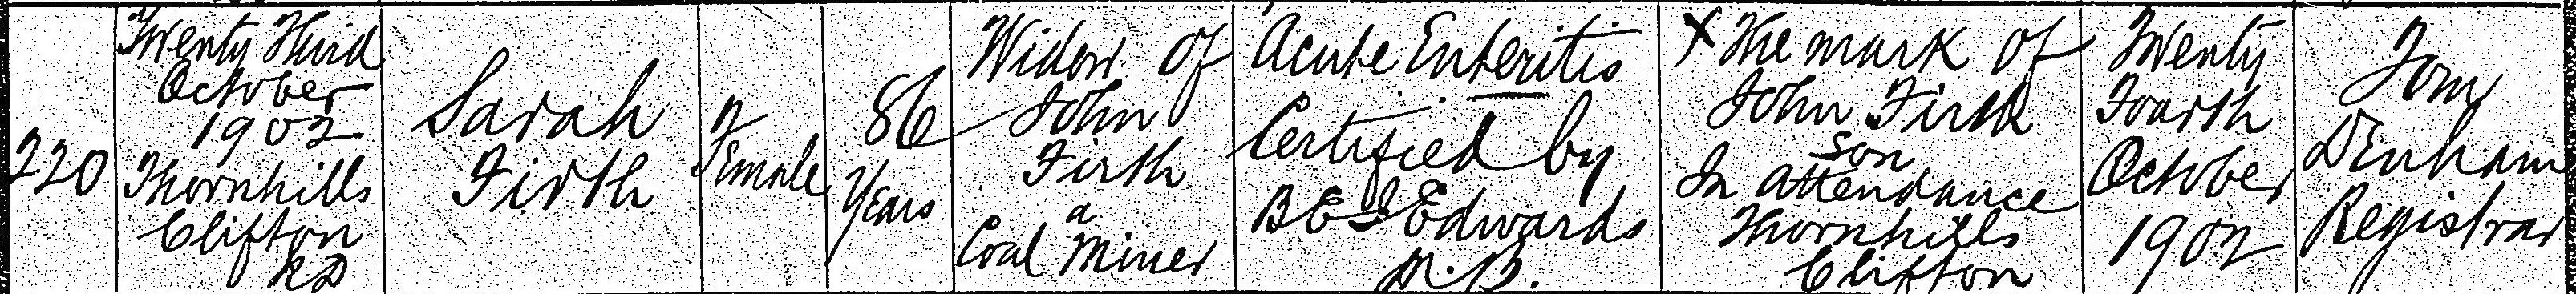 220
Twenty Third
October
1902
Thornhills
Clifton
RD
Sarah
Firth
Female
86
Years
Widow of
John
Firth
a
Coal Miner
Acute Enteritis
Certified by
B E J Edwards
M.B.
X The mark of
John Firth
Son
In attendance
Thornhills
Clifton
Twenty
Fourth
October
1902
Tom
Denham
Registrar